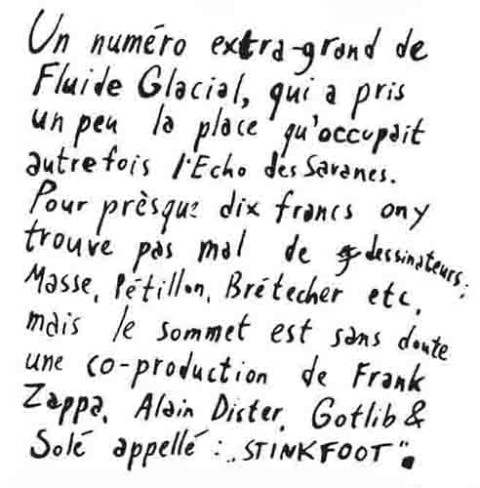 Un numéro extra-grand de
Fluide Glacial, qui a pris
un peu la place qu'occupait
autrefois l'Echo des Savanes.
Pour prèsque dix francs ony
trouve pas mal de dessinateurs:
Masse, Pétillon, Brétecher etc,
mais le sommet est sans doute
une co-production de Frank
Zappa, Alain Dister, Gotlib &
Solé appellé : „STINKFOOT".